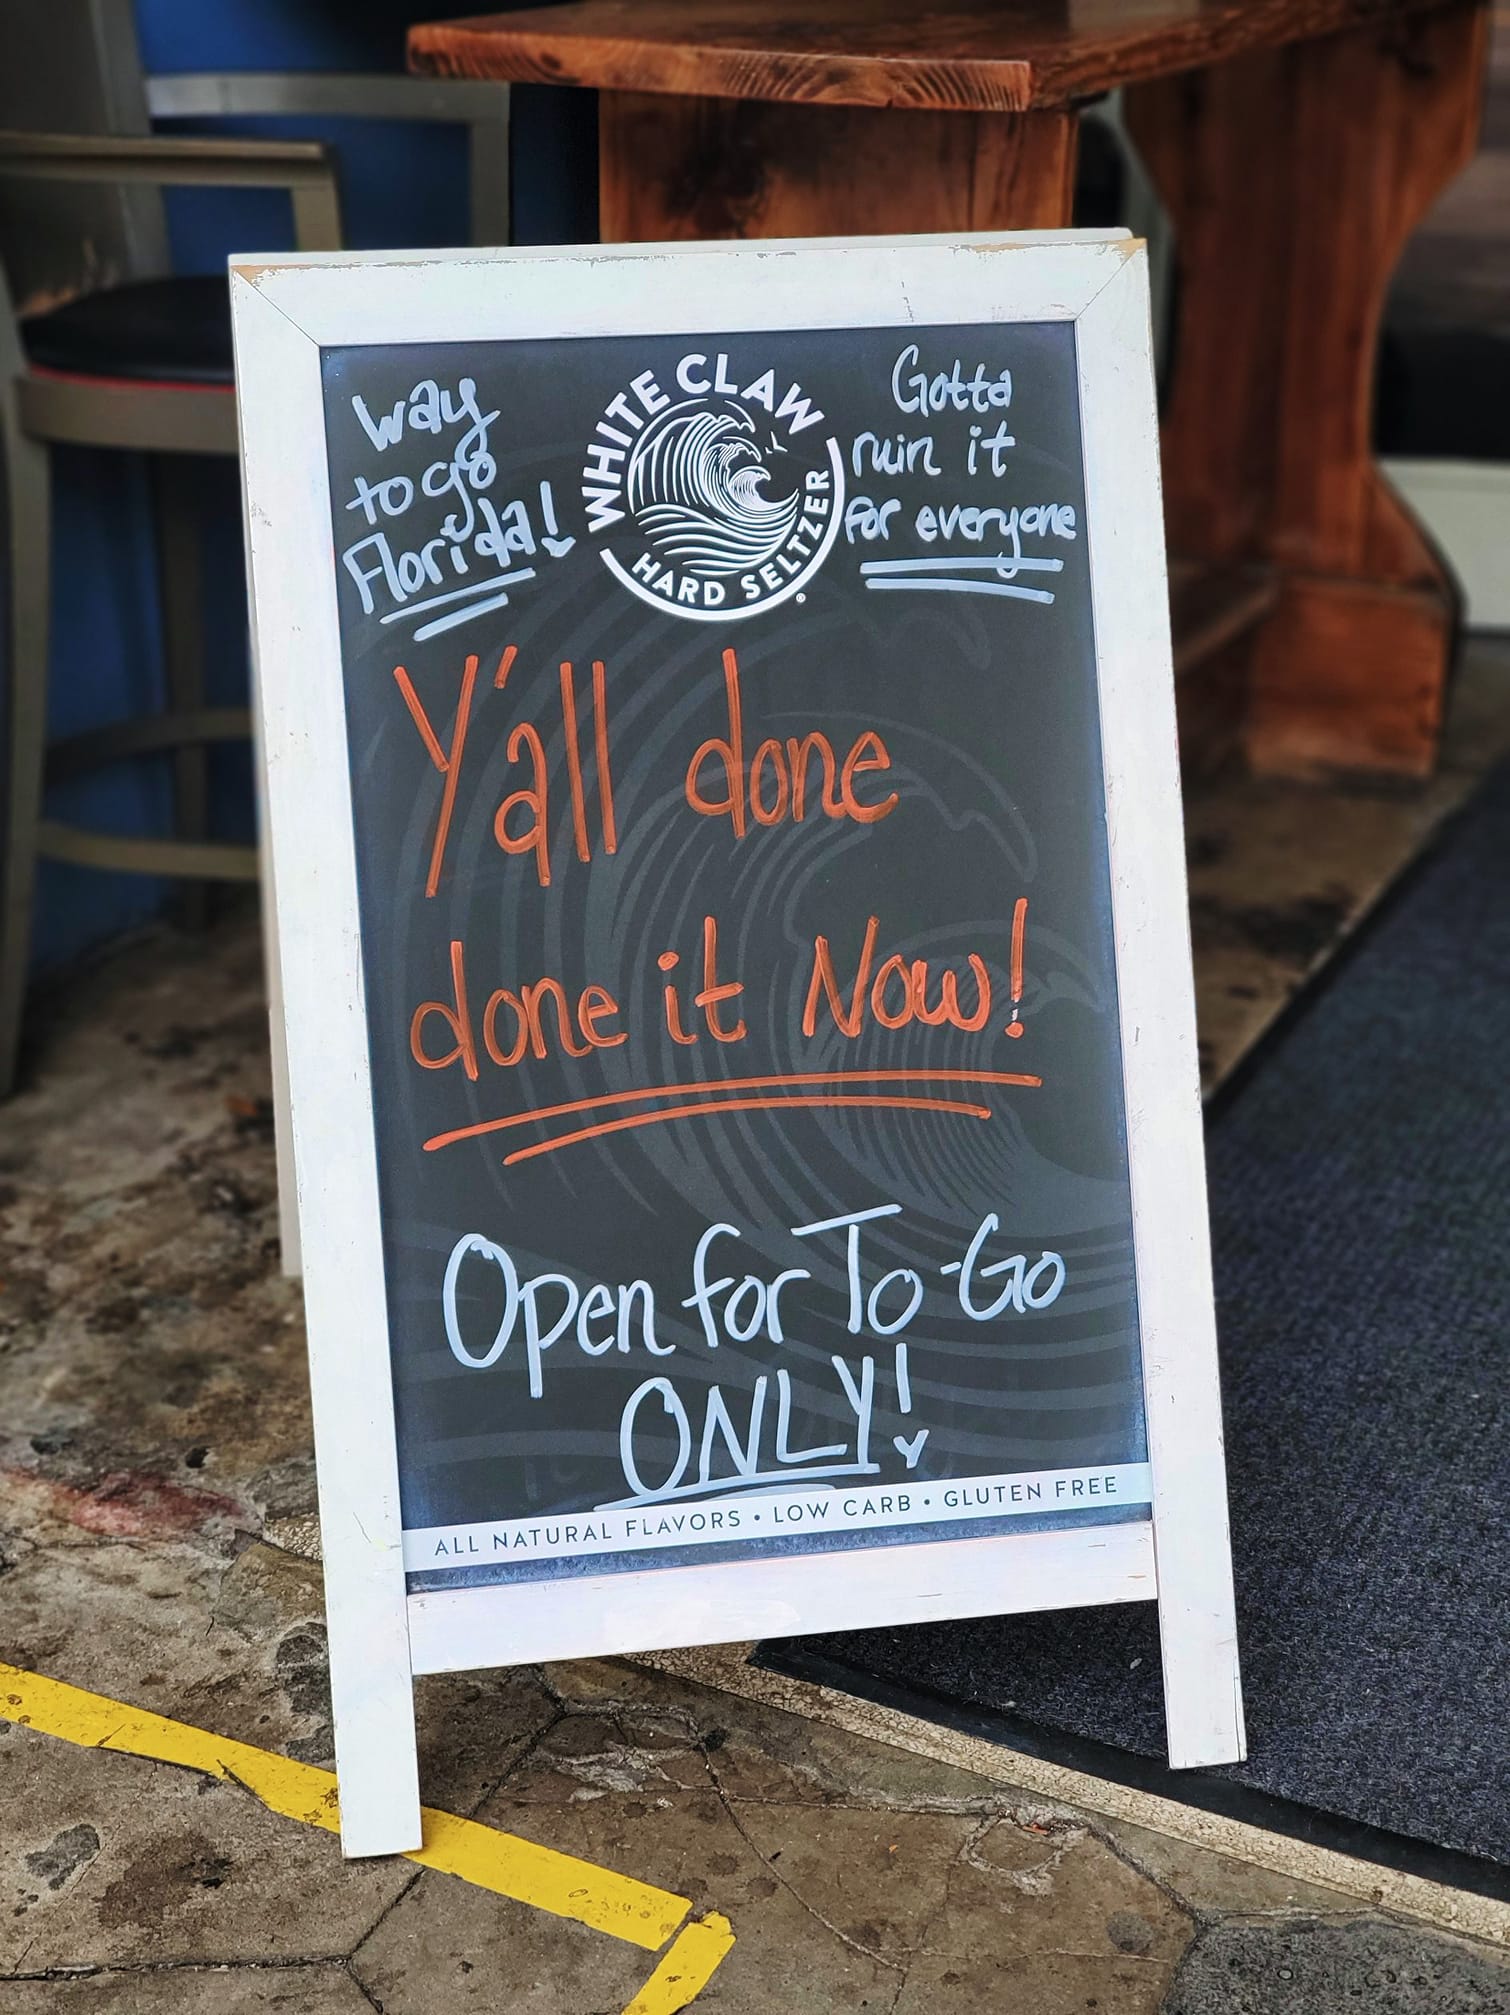 Way
to go
Florida!
WHITE CLAW
HARD SELTZER
®
Gotta
ruin it
for everyone
Y'all done
done it Now!
Open for To-Go
ONLY!
ALL NATURAL FLAVORS • LOW CARB • GLUTEN FREE